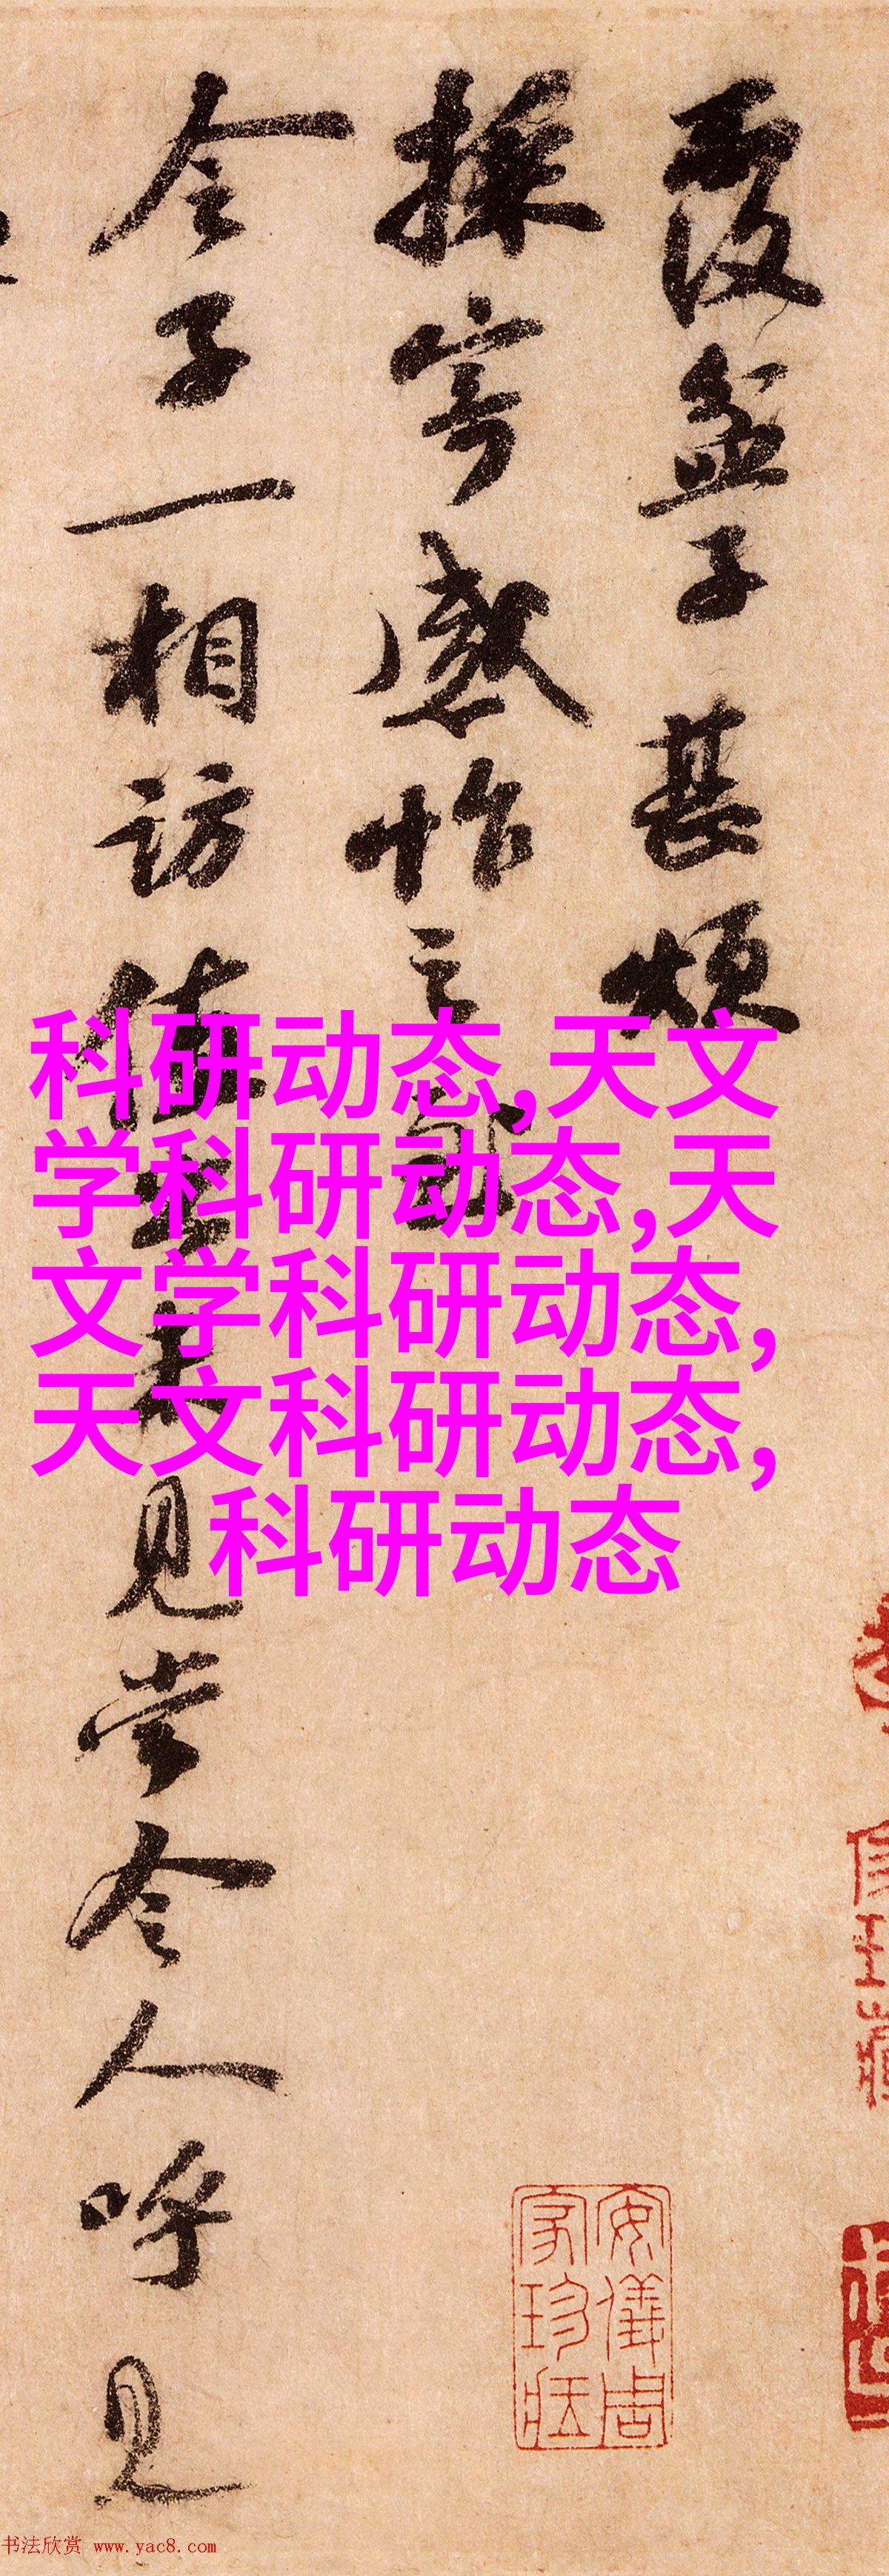 覆盆子甚煩
採寄感怍之
令子一相訪見當令人呼見
科研动态,天文
学科研动态,天
文学科研动态,
天文科研动态,
科研动态
安儀周
家珍藏
书法欣赏 www.yac8.com